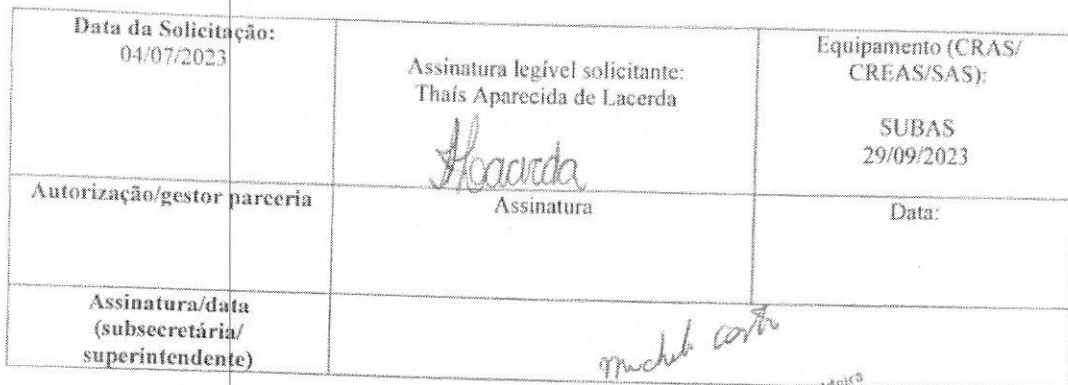 Data da Solicitação:
04/07/2023
Assinatura legível solicitante:
Thaís Aparecida de Lacerda
Equipamento (CRAS/
CREAS/SAS):
SUBAS
29/09/2023
Autorização/gestor parceria
Assinatura
Data:
Assinatura/data
(subsecretária/
superintendente)